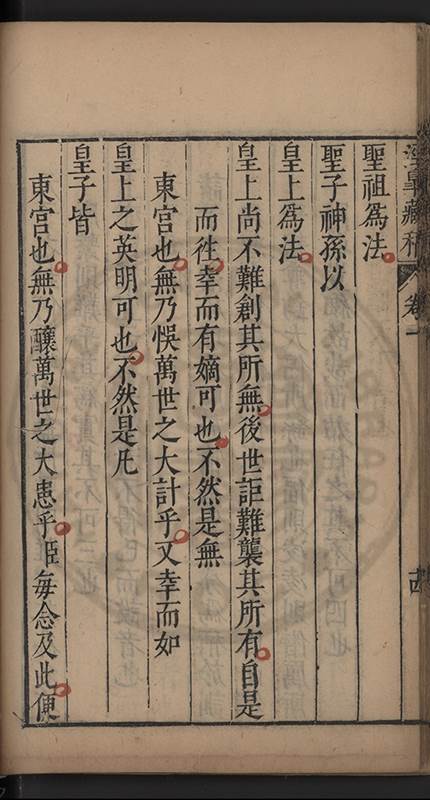 涇臯藏稿 卷一
聖祖爲法
聖子神孫以
皇上爲法
皇上尚不難創其所無後世詎難襲其所有自是
而徃幸而有嫡可也不然是無
東宮也無乃悞萬世之大計乎又幸而如
皇上之英明可也不然是凡
皇子皆
東宮也無乃釀萬世之大患乎臣每念及此便